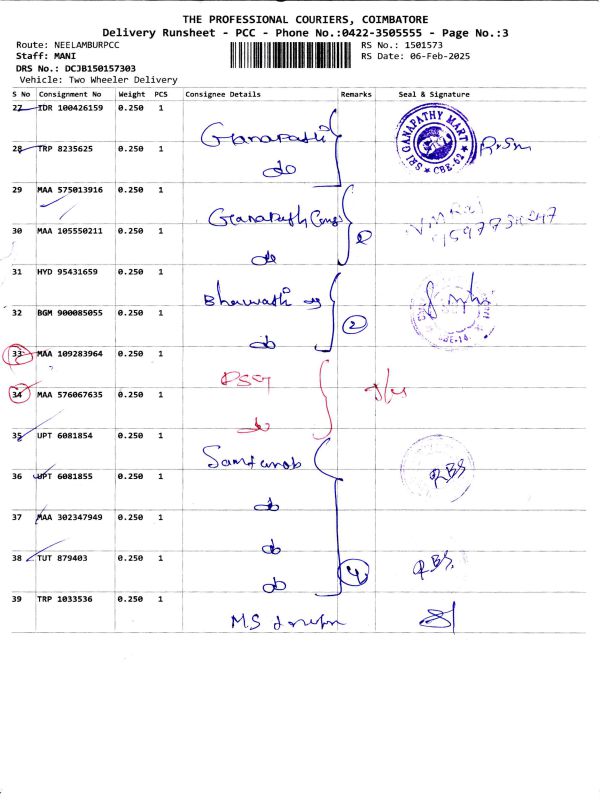 THE PROFESSIONAL COURIERS, COIMBATORE
Delivery Runsheet - PCC - Phone No.:0422-3505555 - Page No.:3
Route: NEELAMBURPCC
RS No.: 1501573
Staff: MANI
RS Date: 06-Feb-2025
DRS No.: DCJB150157303
Vehicle: Two Wheeler Delivery
S No Consignment No Weight PCS Consignee Details Remarks Seal & Signature
27 IDR 100426159 0.250 1 Ganapathi
SRI GANAPATHY MART CBE-62
28 TRP 8235625 0.250 1 do
29 MAA 575013916 0.250 1
30 MAA 105550211 0.250 1 do
31 HYD 95431659 0.250 1
32 BGM 900085055 0.250 1 do 2
33 MAA 109283964 0.250 1 PSG
34 MAA 576067635 0.250 1 do
35 UPT 6081854 0.250 1
36 UPT 6081855 0.250 1 do RBS
37 MAA 302347949 0.250 1 do
38 TUT 879403 0.250 1 do 4 RBS
39 TRP 1033536 0.250 1 MS